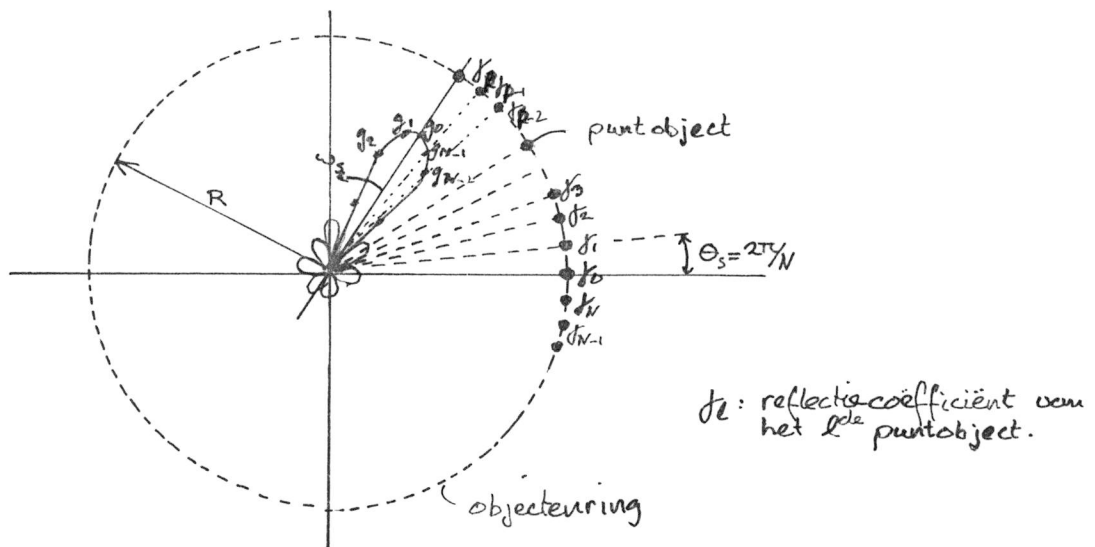 γp
γp-1
γp-2
puntobject
g2
g1
g0
gN-1
gN-2
ωs
R
γ3
γ2
γ1
θs = 2π/N
γ0
γN
γN-1
γℓ : reflectiecoëfficiënt van
het ℓde puntobject.
objectenring